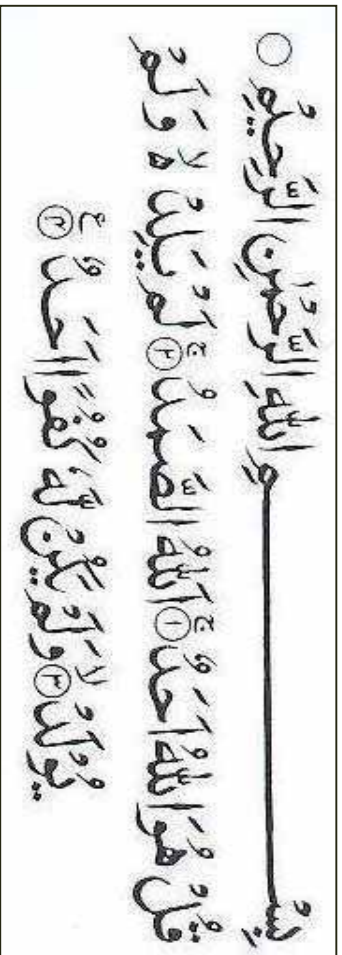 بِسْمِ اللهِ الرَّحْمٰنِ الرَّحِيْمِ ○
قُلْ هُوَ اللهُ اَحَدٌ ۚ ۝۱ اَللهُ الصَّمَدُ ۚ ۝۲ لَمْ يَلِدْ ۙ۬ وَلَمْ
يُوْلَدْ ۙ ۝۳ وَلَمْ يَكُنْ لَّهٗ كُفُوًا اَحَدٌ ۝۴ ع